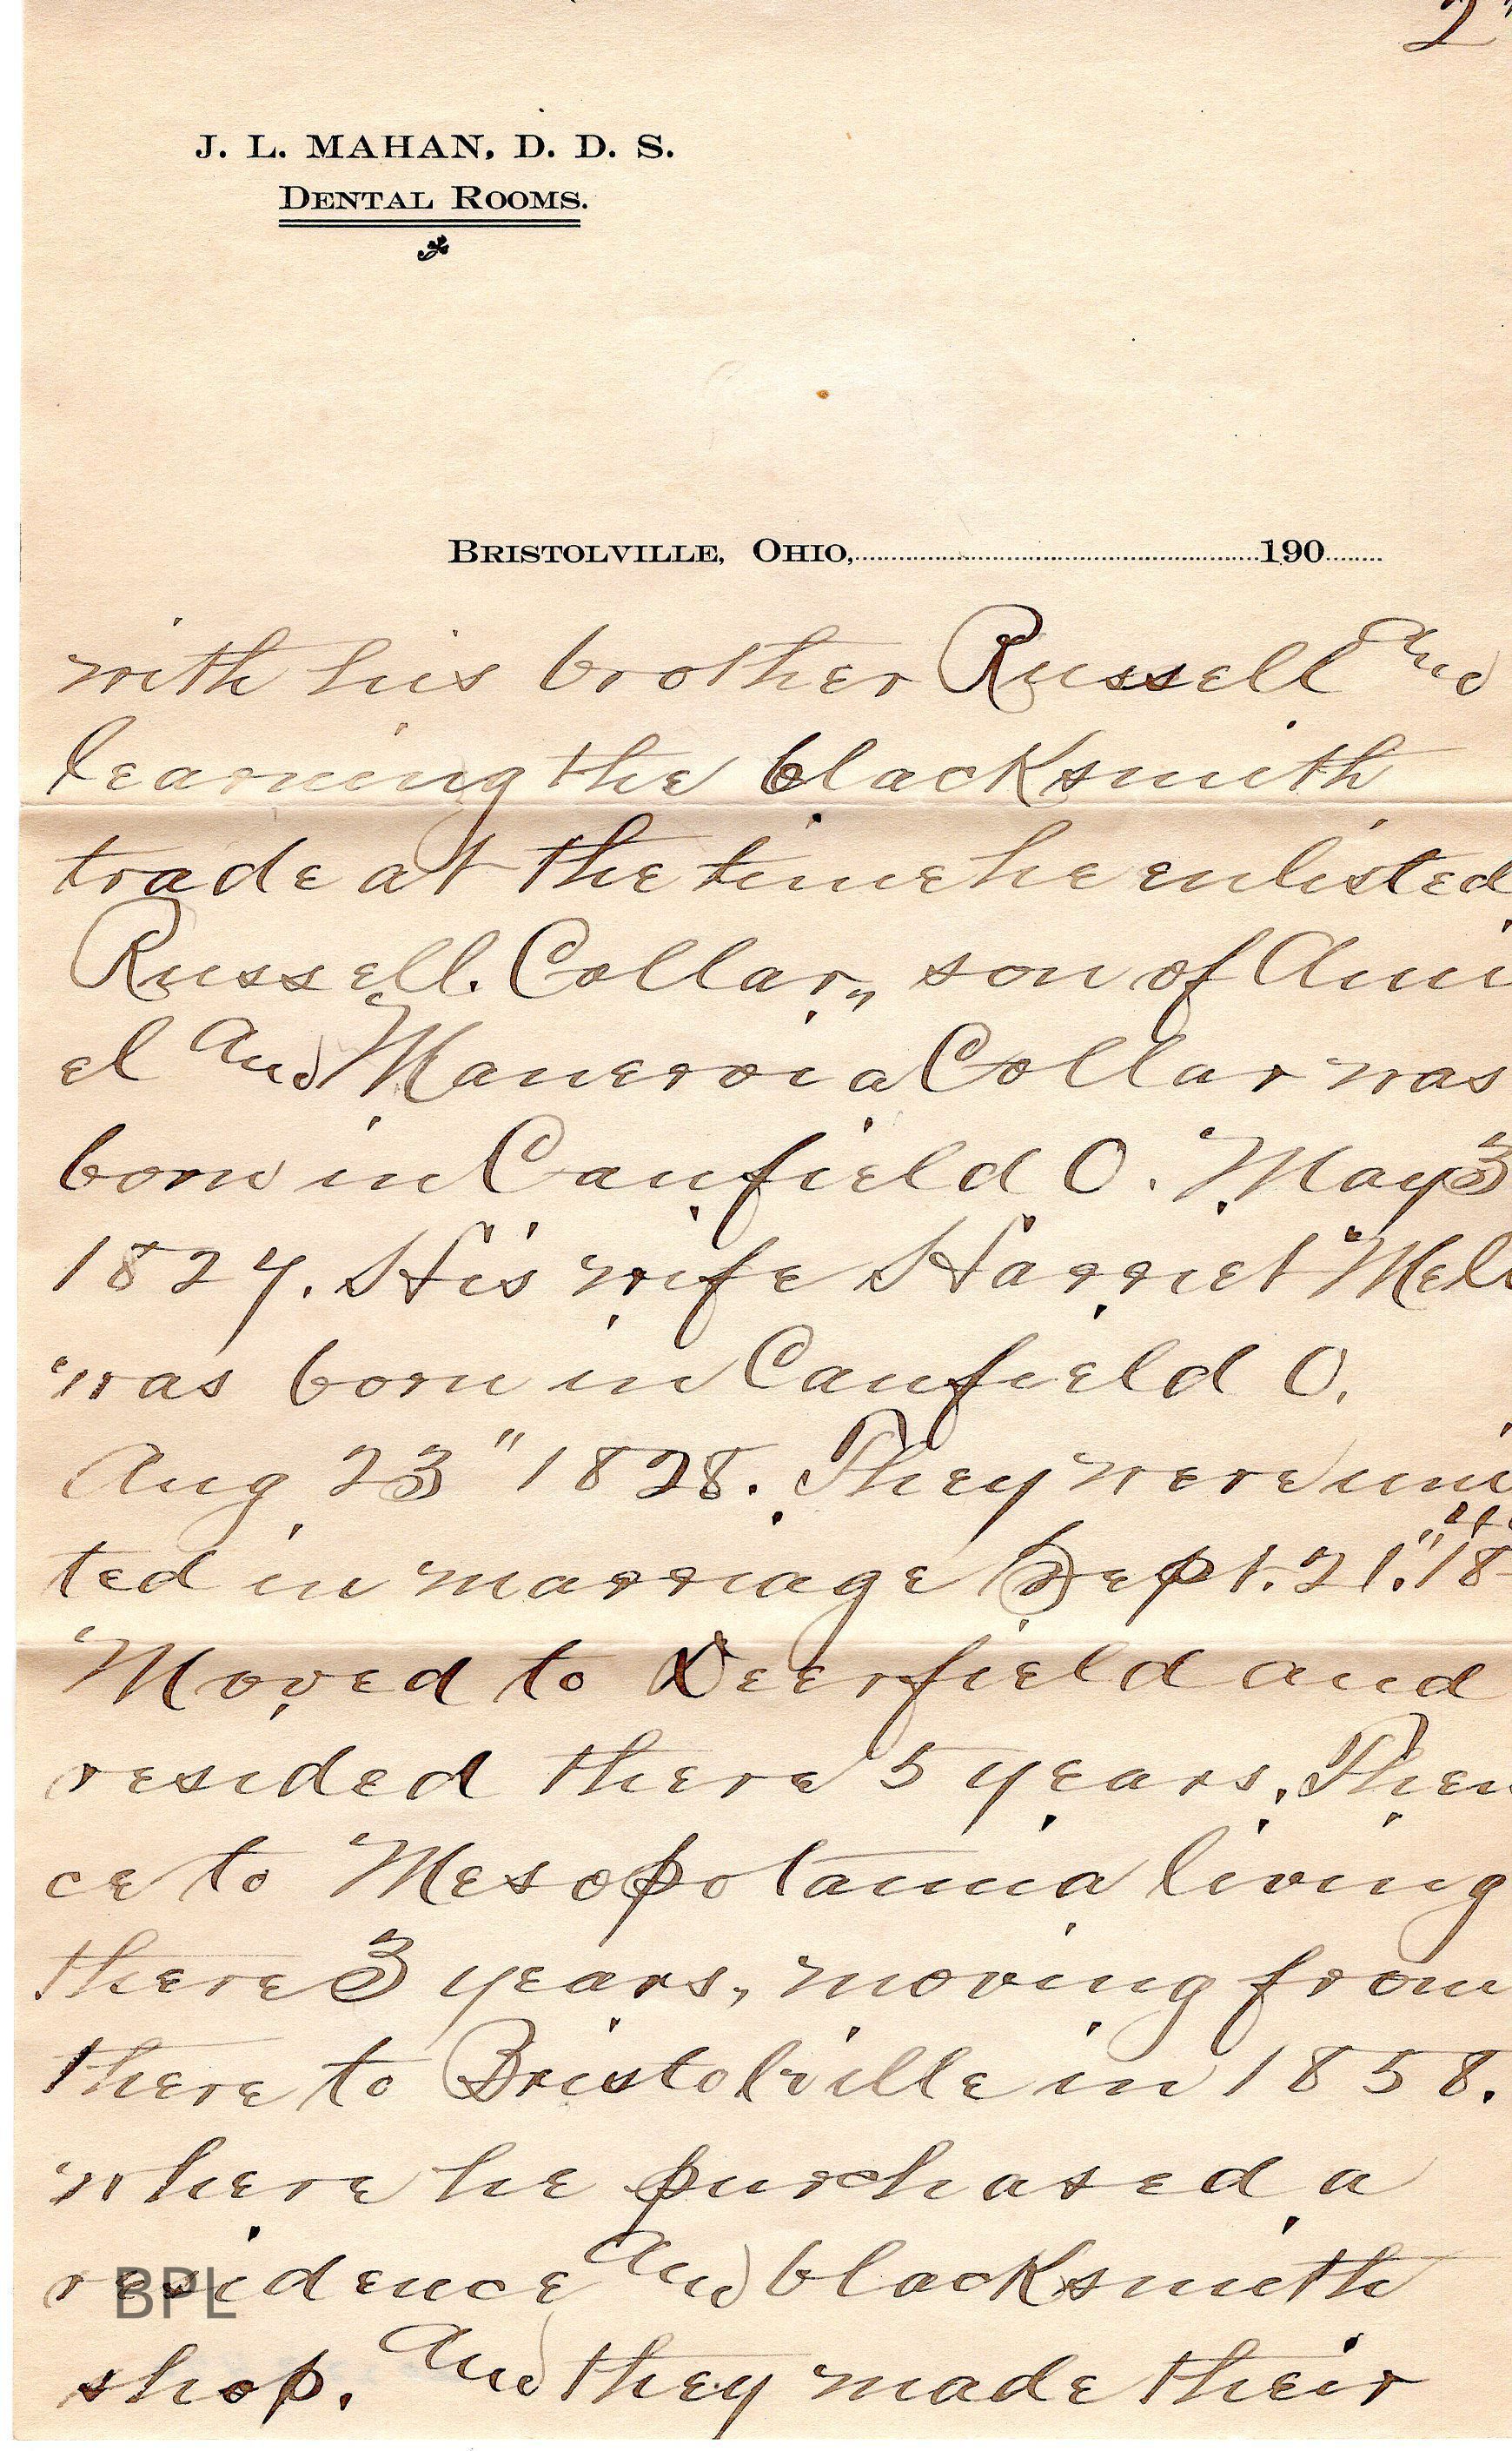 2"
J. L. MAHAN, D. D. S.
DENTAL ROOMS.
BRISTOLVILLE, OHIO,..........190......
with his brother Russell and
learning the blacksmith
trade at the time he enlisted
Russell. Collar,, son of Ami
el and Manervia Collar was
born in Canfield O. May 3
1824. His wife Harriet
was born in Canfield O.
Aug 23" 1828. They were uni
ted in marriage Sept. 21." 18
Moved to Deerfield and
resided there 5 years. Then
ce to Mesopotamia living
there 3 years, moving from
there to Bristolville in 1858.
where he purchased a
residence and blacksmith
shop. and they made their
BPL